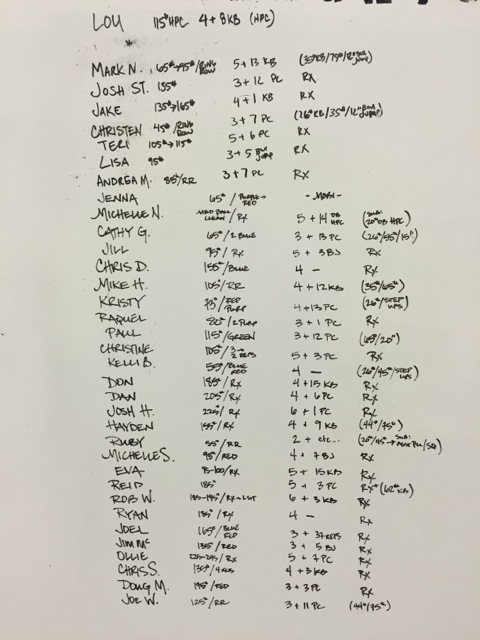 LOU 115# HPC 4 + 8 KB (HPC)
MARK N. 65#→95#/RING ROW 5 + 13 KB (35KB/75#/BOX JUMP)
JOSH ST. 135# 3 + 12 PC RX
JAKE 135#→165# 4 + 1 KB RX
CHRISTEN 45#/RING ROW 3 + 7 PC (26#KB/35#/12"BOX JUMP)
TERI 105#→115# 5 + 6 PC RX
LISA 95# 3 + 5 BOX JUMP RX
ANDREA M. 85/RR 3 + 7 PC RX
JENNA 65#/PURPLE→RED - MOBI -
MICHELLE N. MED BALL CLEAN/RX 5 + 14 DB HPC (SUB: 20#DB HPC)
CATHY G. 65#/2 BLUE 3 + 13 PC (26#/55/15")
JILL 95#/RX 5 + 3 BJ RX
CHRIS D. 155#/BLUE 4 - RX
MIKE H. 105/RR 4 + 12 KB (35#/65#)
KRISTY 73#/RED PURP 4 + 13 PC (26#/STEP UPS)
RAQUEL 80#/2 PURP 3 + 1 PC RX
PAUL 115#/GREEN 3 + 12 PC (65#/20")
CHRISTINE 105#/3→2 REPS 5 + 3 PC RX
KELLI B. 55#/BLUE RED 4 - (26#/45#/STEP UPS)
DON 185#/RX 4 + 15 KB RX
DAN 205#/RX 4 + 6 PC RX
JOSH H. 225/RX 6 + 1 PC RX
HAYDEN 155#/RX 4 + 9 KB (44#/75#)
RUBY 55#/RR 2 + etc.. (26#/45#→SUB:
MICHELLE S. 95#/RED 4 + 7 BJ RX
EVA 95-100/RX 5 + 15 KB RX
REID 185# 5 + 3 PC RX+ (62#KB)
ROB W. 185-195#/RX→ 6 + 3 KB RX
RYAN 135#/RX 4 - RX
JOEL 165#/BLUE RED 3 + 37 REPS RX
JIM Mc 135#/RED 3 + 5 BJ RX
OLLIE 225-245/RX 5 + 2 PC RX
CHRIS S. 135#/ 4 + 3 KB RX
DOUG M. 195#/RED 3 + 3 PC RX
JOE W. 125#/RR 3 + 11 PC (44#/75#)